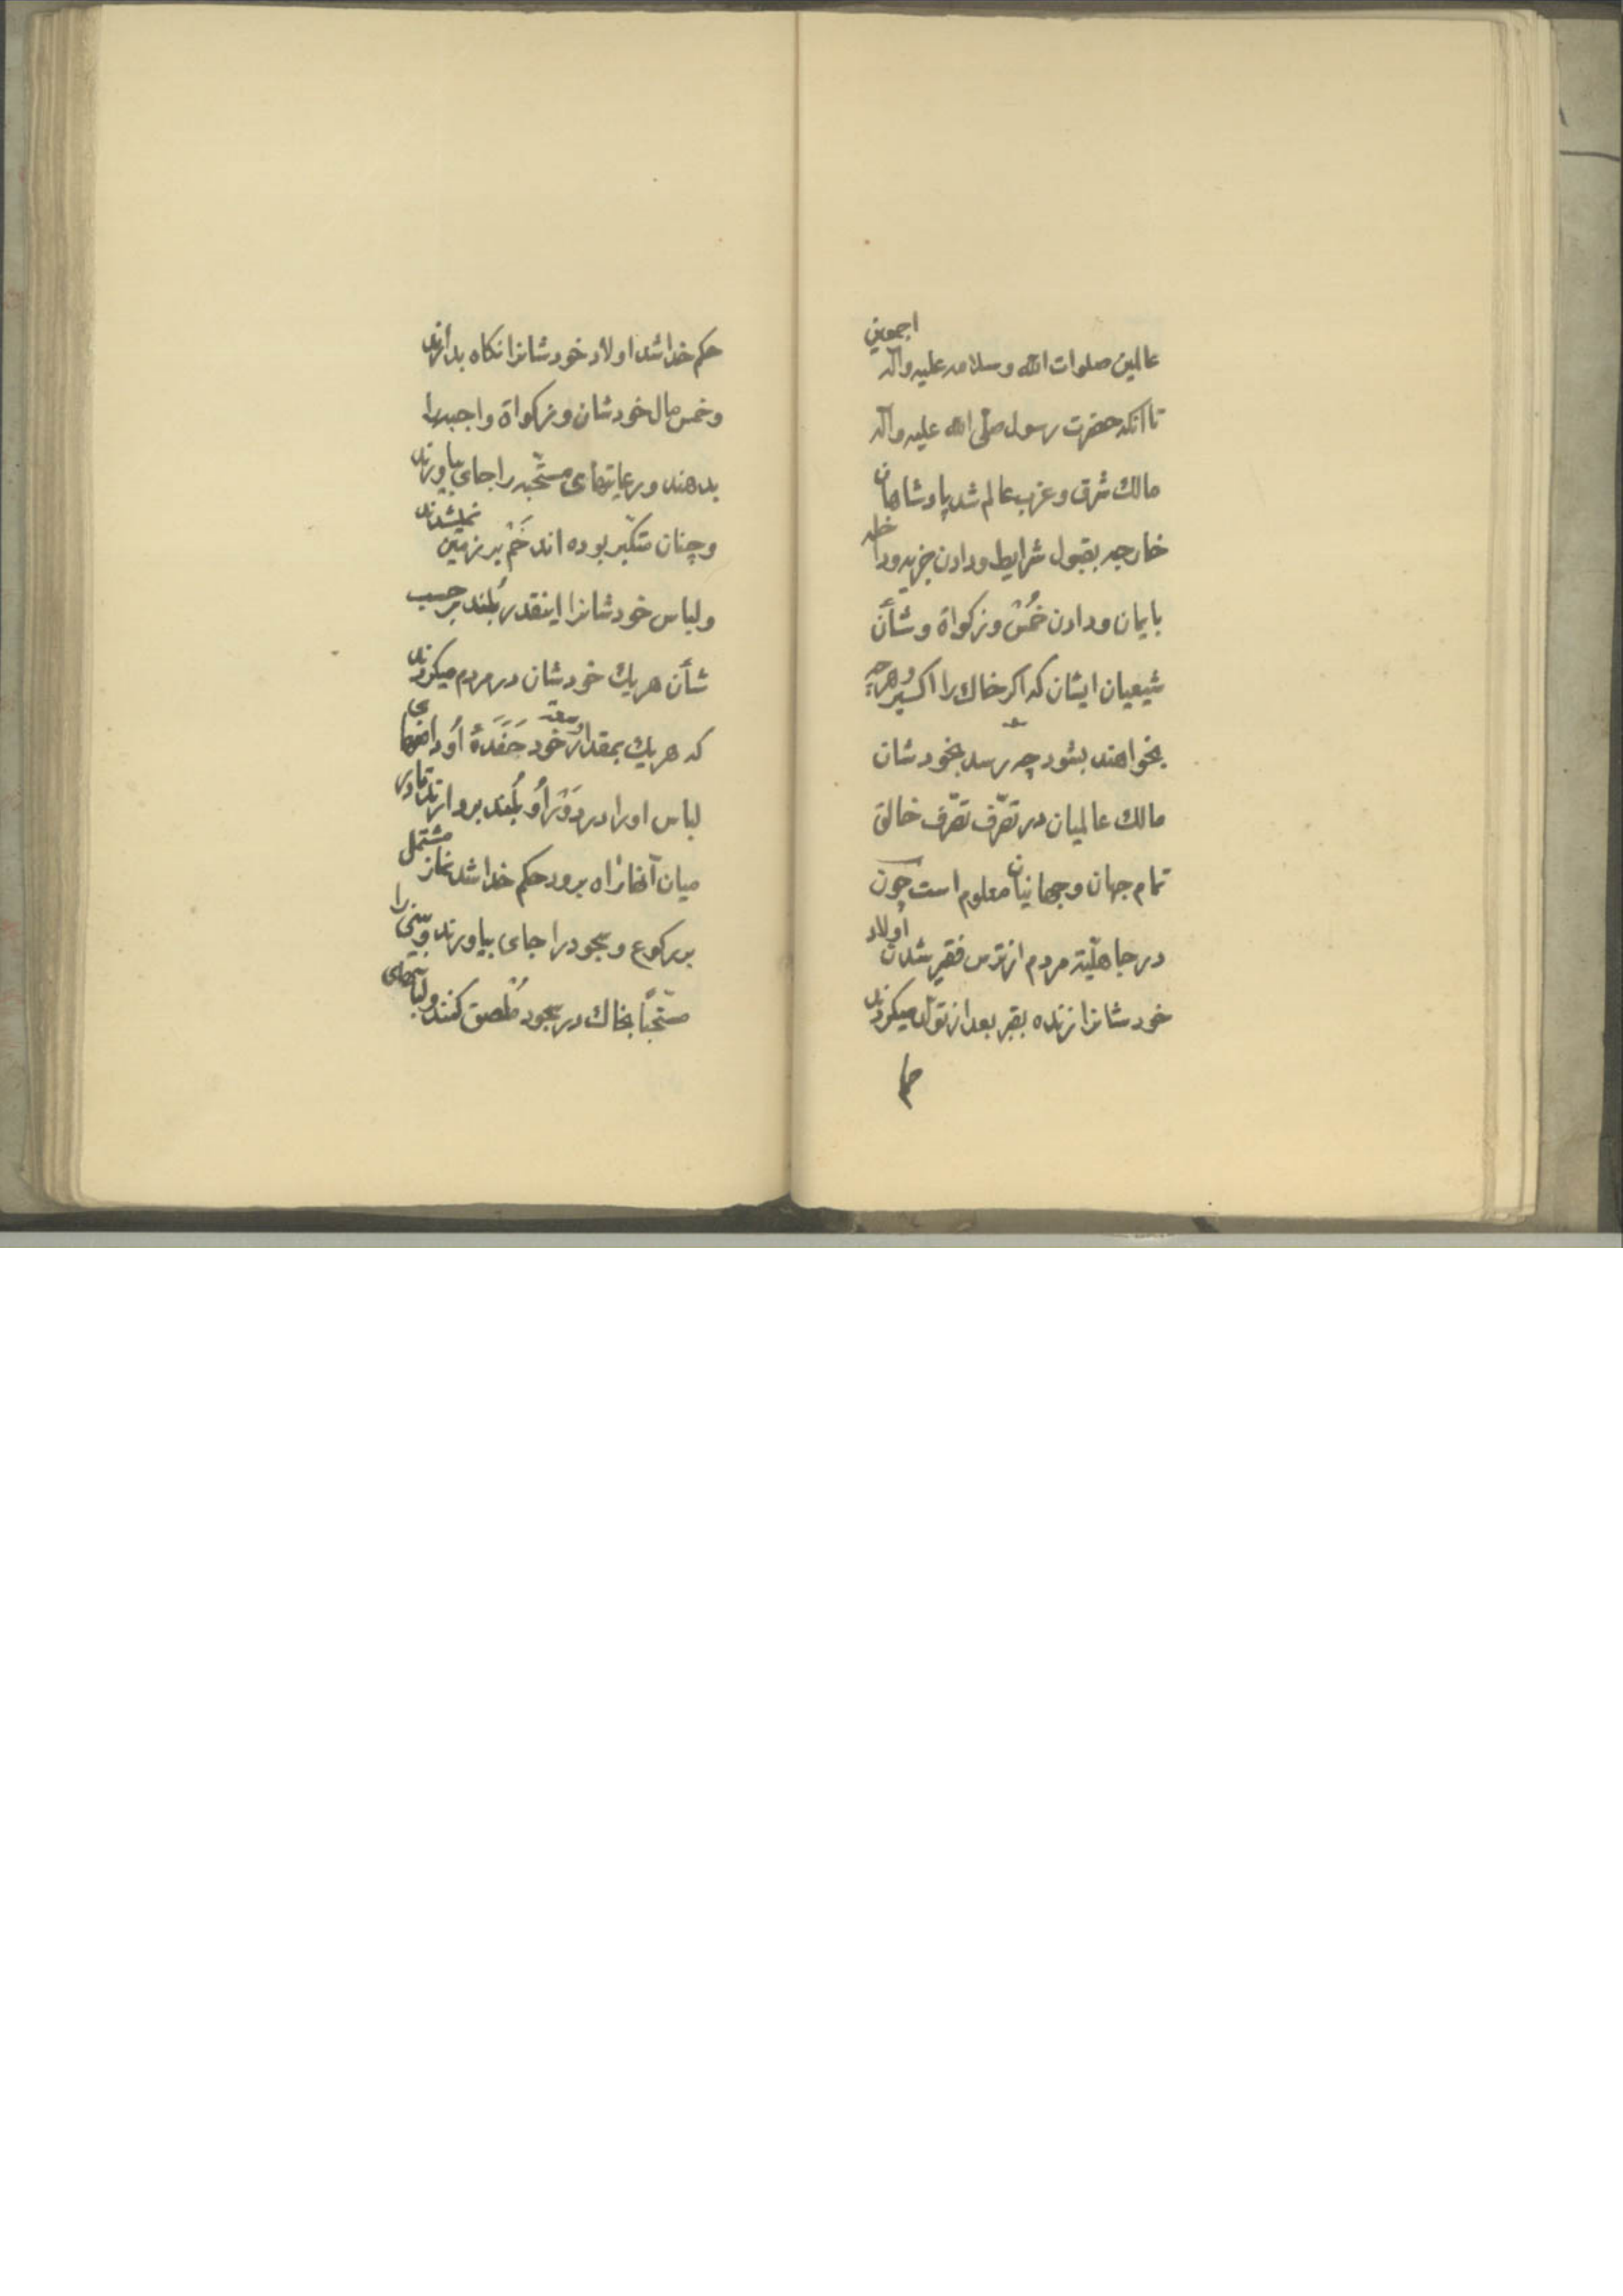 عالمین صلوات الله و سلامه علیه وآله اجمعین
تا آنکه حضرت رسول صلّی الله علیه وآله
مالك شرق وغرب عالم شد پادشاهان
خارجه بقبول شرایط ودادن جزیه ودا
بایمان ودادن خُمْسْ وزکواة وشأن
شیعیان ایشان که اکر خاك را اکسیر وهرچه
بخواهند بشود چه رسد بخودشان
مالك عالمیان در تصّرف تصّرف خالق
تمام جهان وجهانیان معلوم است چون
در جاهلیّة مردم از ترس فقیر شدن اولاد
خودشانرا زنده بقبر بعد از تولّد میکردند
حکم خدا شد اولاد خودشانرا نکاه بدارند
وخمس مال خودشان وزکواة واجبه را
بدهند ورعایتهای مستّحبه را جای بیاورند
وچنان متکبّر بوده اند خَمْ بر زمین نمیشدند
ولباس خودشانرا اینقدر بُلند برحسب
شأن هریك خودشان در مردم میکردند
که هریك بمقدار خود حَفَدَهٔ اُو
لباس اورا در دَوْر اُو بُلند بردارند تا در
میان آنها راه برود حکم خدا شد نماز مشتمل
بر رکوع وسجود را جای بیاورند وبینی را
مستّحبّاً بخاك در سجود مُلصق کنند ولباسهای